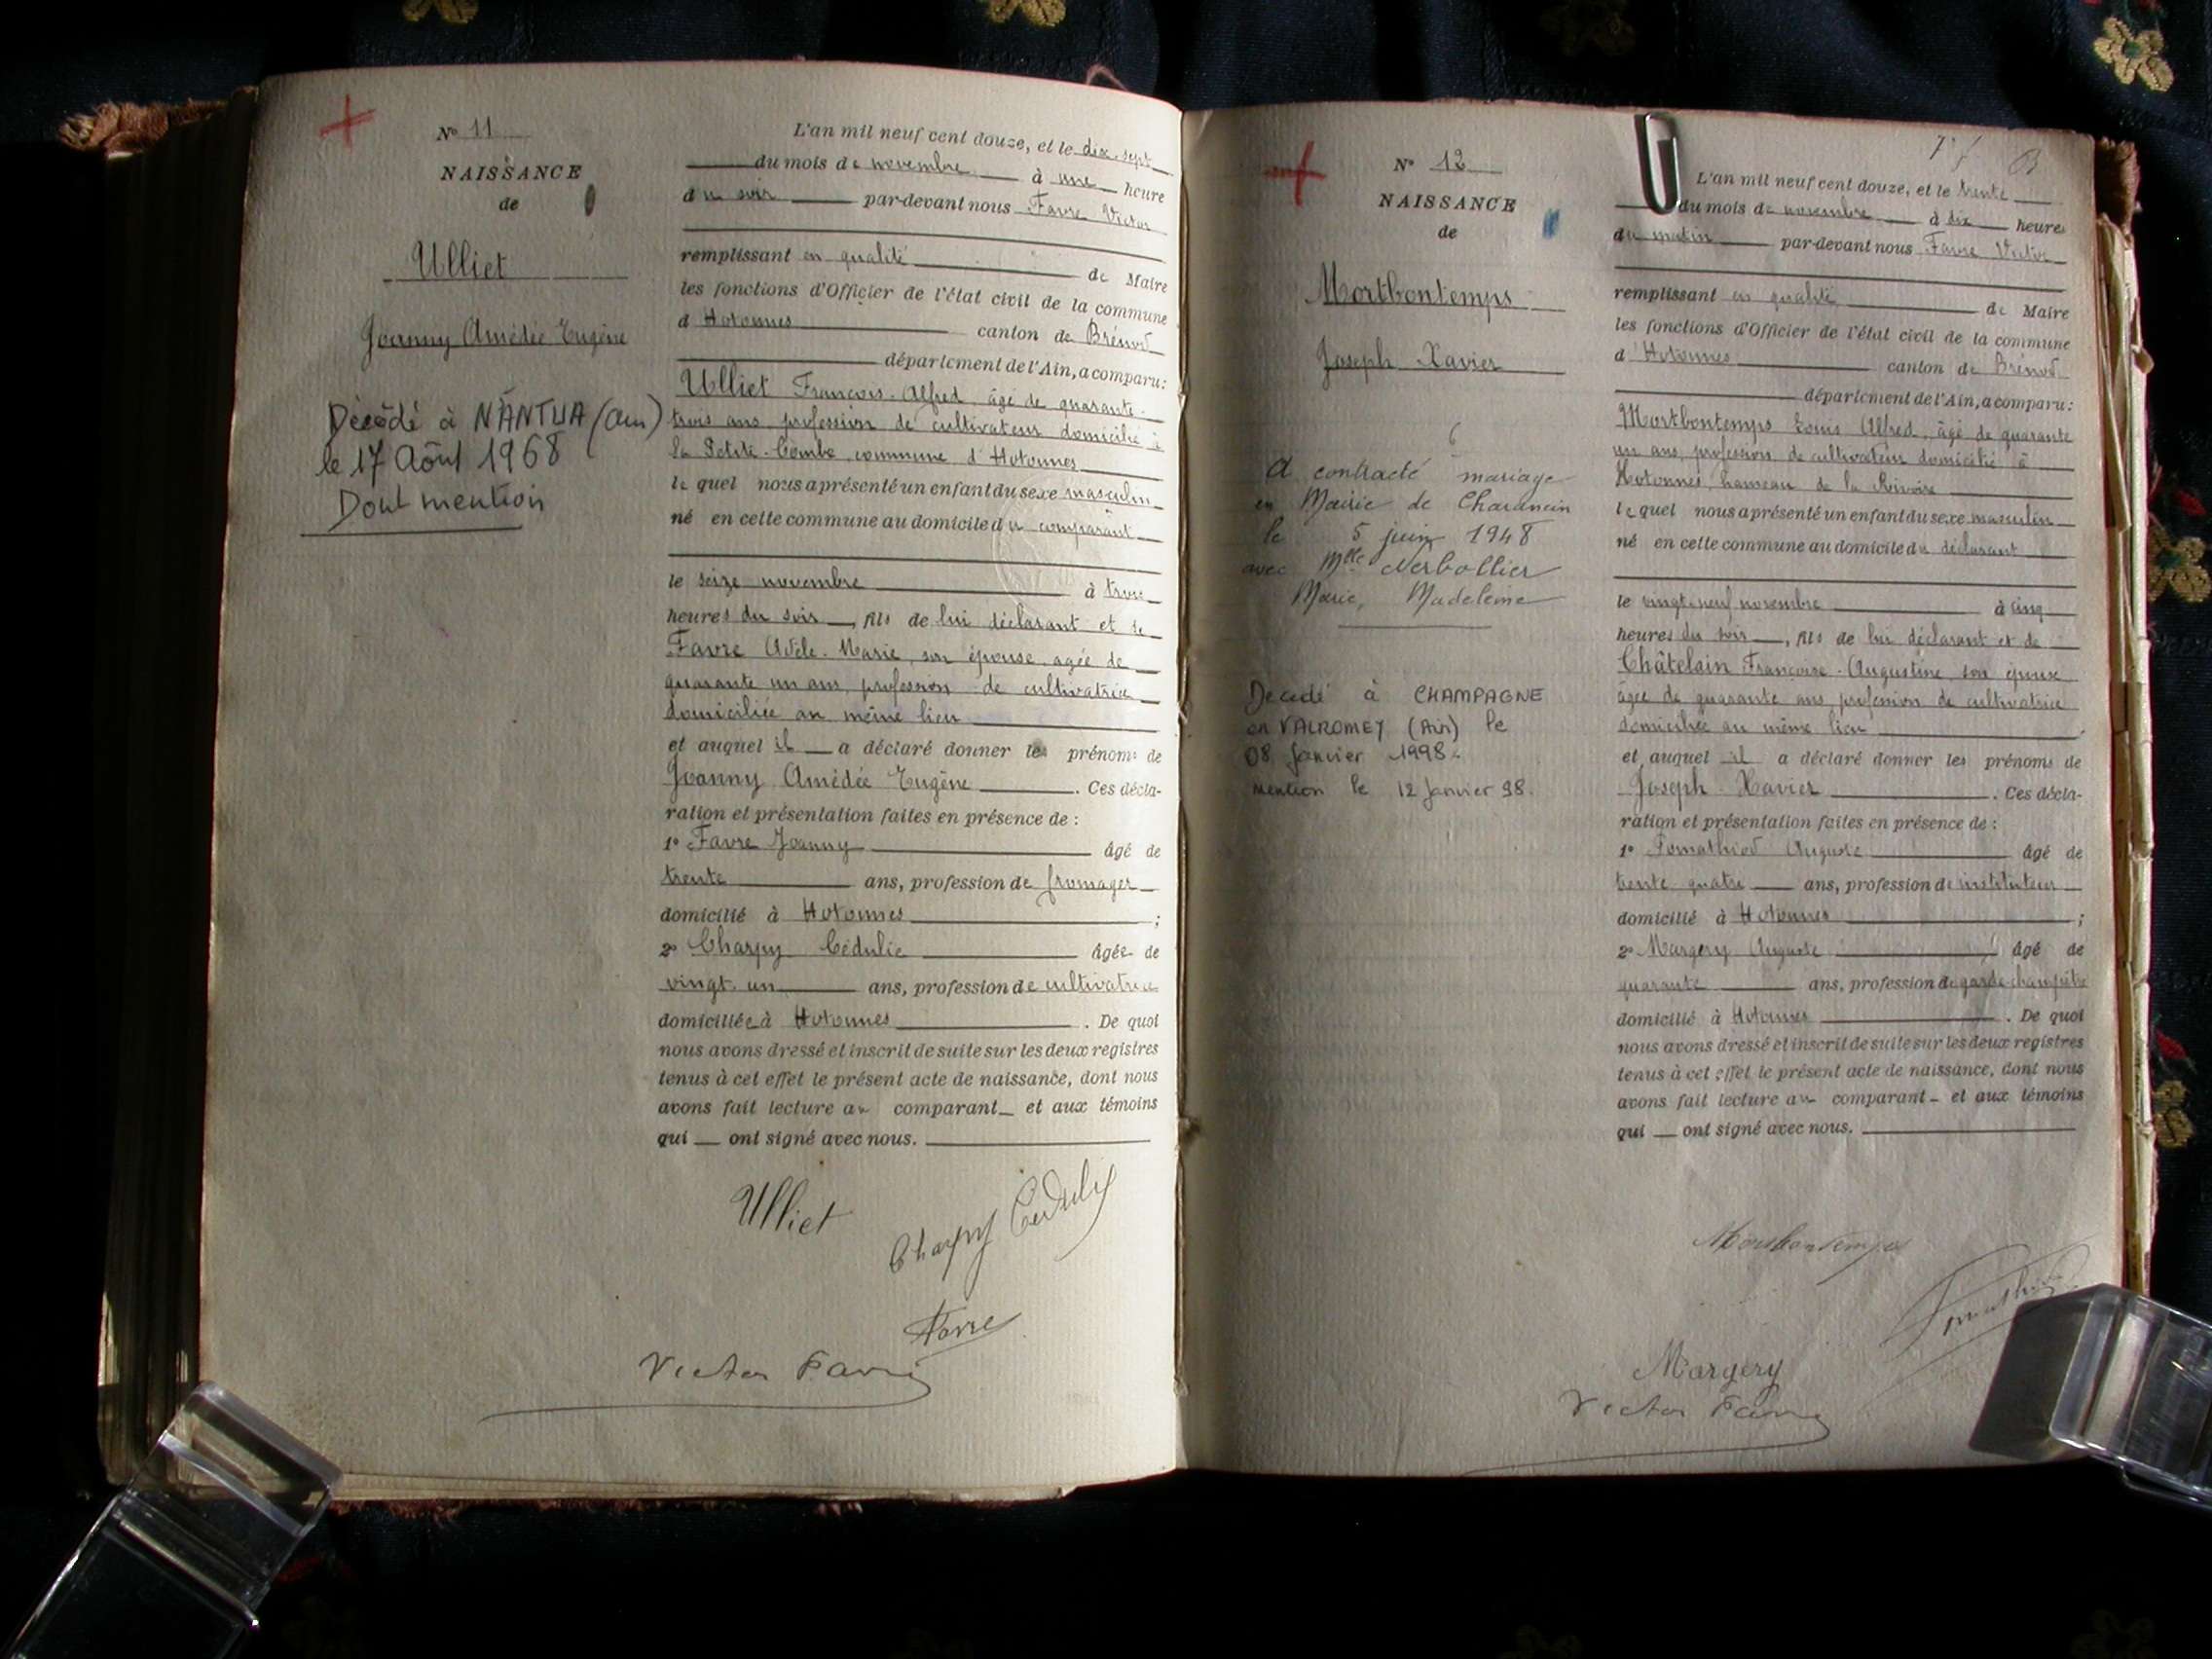 N° 11
NAISSANCE
de
Ulliet
Joanny Amédée Eugène
Décédé à NANTUA (Ain)
le 17 Août 1968
Dont mention
L'an mil neuf cent douze, et le dix-sept
du mois de novembre à une heure
du soir par-devant nous Favre Victor
remplissant en qualité de Maire
les fonctions d'Officier de l'état civil de la commune
d Hotonnes canton de Brénod
département de l'Ain, a comparu:
Ulliet François-Alfred, âgé de quarante-
trois ans, profession de cultivateur domicilié à
la Petite-Combe commune d'Hotonnes
lequel nous a présenté un enfant du sexe masculin
né en cette commune au domicile du comparant
le seize novembre à trois
heures du soir, fils de lui déclarant et de
Favre Adèle-Marie, son épouse agée de
quarante un ans, profession de cultivatrice
domiciliée au même lieu
et auquel il a déclaré donner les prénoms de
Joanny Amédée Eugène. Ces décla-
ration et présentation faites en présence de :
1° Favre Joanny âgé de
trente ans, profession de fromager
domicilié à Hotonnes ;
2° Charpy Cédulie âgée de
vingt-un ans, profession de cultivatrice
domiciliée à Hotonnes. De quoi
nous avons dressé et inscrit de suite sur les deux registres
tenus à cet effet le présent acte de naissance, dont nous
avons fait lecture au comparant et aux témoins
qui ont signé avec nous.
Ulliet
Charpy Cédulie
Favre
Victor Favre
N° 12
NAISSANCE
de
Mortbontemps
Joseph Xavier
A contracté mariage
en Mairie de Charancin
le 5 juin 1948
avec Mlle Nerbollier
Marie, Madeleine
Décédé à CHAMPAGNE
en VALROMEY (Ain) le
08 Janvier 1998.
Mention le 12 Janvier 98.
L'an mil neuf cent douze, et le trente
du mois de novembre à dix heures
du matin par-devant nous Favre Victor
remplissant en qualité de Maire
les fonctions d'Officier de l'état civil de la commune
d Hotonnes canton de Brénod
département de l'Ain, a comparu:
Mortbontemps Louis Alfred, âgé de quarante
un ans, profession de cultivateur domicilié à
Hotonnes, hameau de la Rivoire
lequel nous a présenté un enfant du sexe masculin
né en cette commune au domicile du déclarant
le vingt-neuf novembre à cinq
heures du soir, fils de lui déclarant et de
Châtelain Françoise-Augustine son épouse
âgée de quarante ans, profession de cultivatrice
domiciliée au même lieu
et auquel il a déclaré donner les prénoms de
Joseph Xavier. Ces décla-
ration et présentation faites en présence de :
1° Pomathiod Auguste âgé de
trente quatre ans, profession de instituteur
domicilié à Hotonnes ;
2° Margery Auguste âgé de
quarante ans, profession de garde-champêtre
domicilié à Hotonnes. De quoi
nous avons dressé et inscrit de suite sur les deux registres
tenus à cet effet le présent acte de naissance, dont nous
avons fait lecture au comparant et aux témoins
qui ont signé avec nous.
Mortbontemps
Margery
Victor Favre